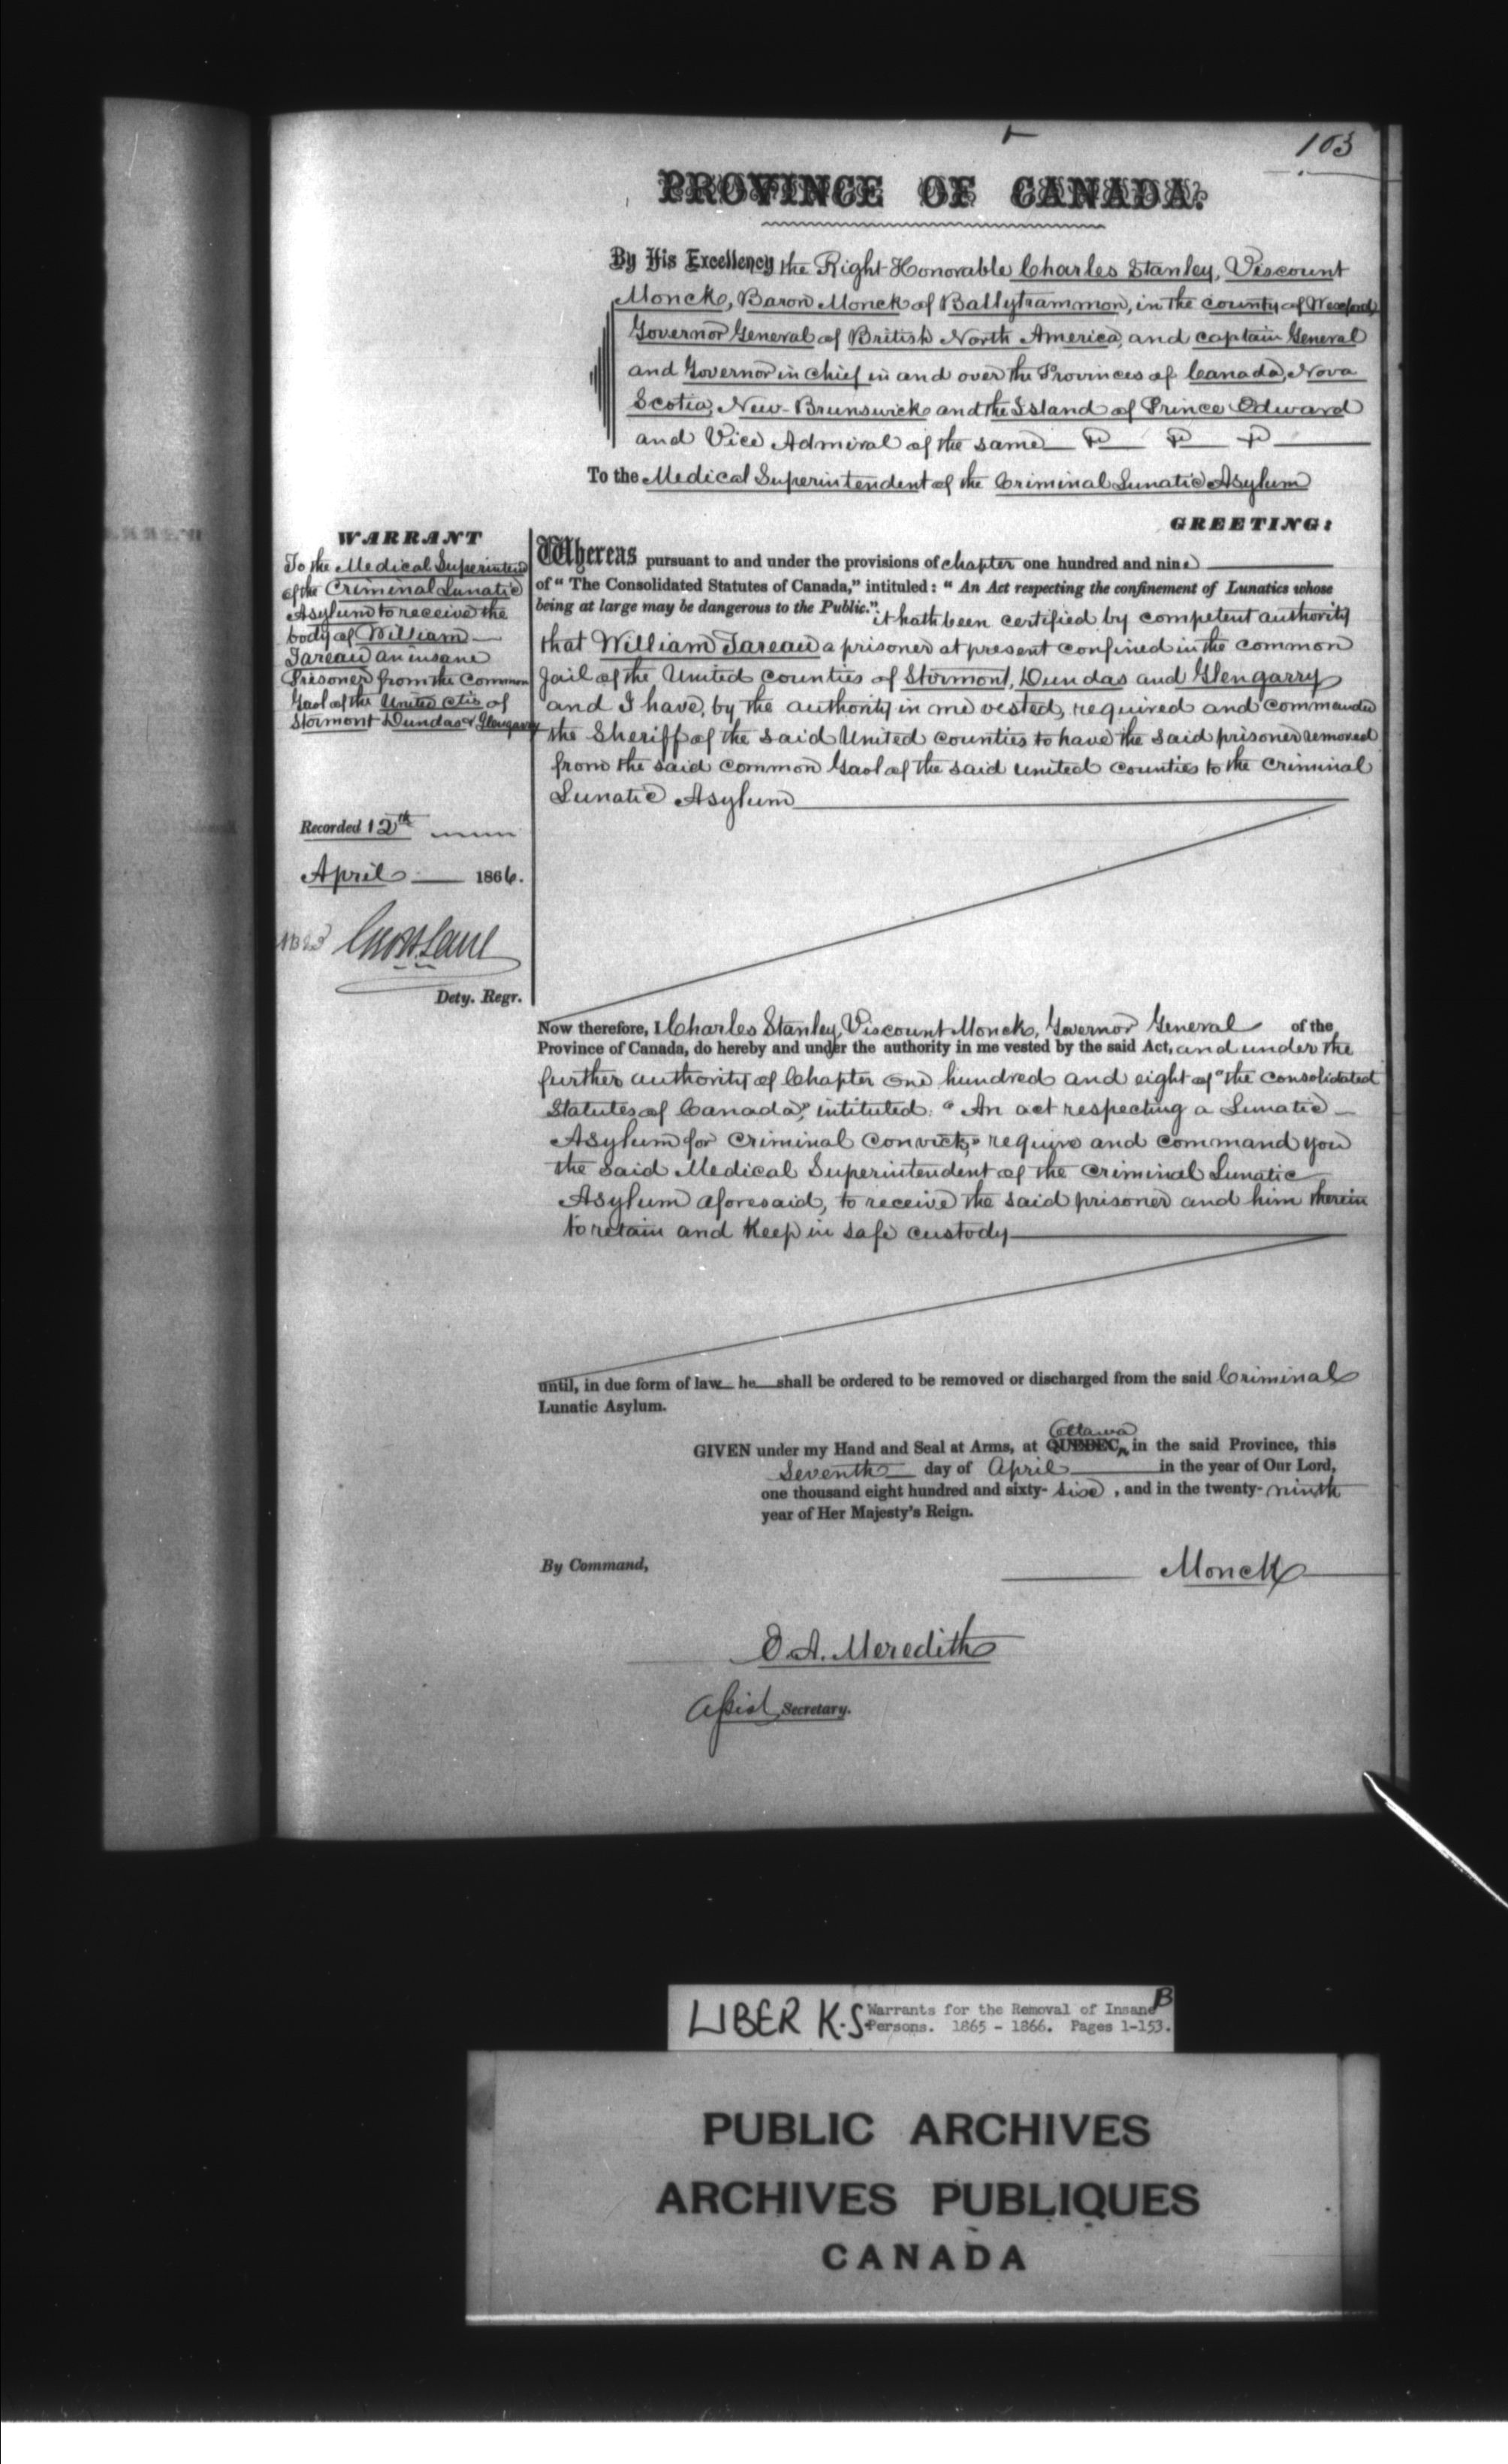 103
PROVINCE OF CANADA.
By His Excellency the Right Honorable Charles Stanley, Viscount
Monck, Baron Monck of Ballytrammon, in the county of Wexford
Governor General of British North America, and captain General
and Governor in chief in and over the Provinces of Canada, Nova
Scotia, New-Brunswick and the Island of Prince Edward
and Vice Admiral of the same
To the Medical Superintendent of the Criminal Lunatic Asylum
GREETING:
WARRANT
To the Medical Superintend
of the Criminal Lunatic
Asylum to receive the
body of William
Tareau an insane
Prisoner from the Common
Gaol of the United Cties of
Stormont Dundas & Glengarry
Recorded 12th
April 1866.
Dety. Regr.
Whereas pursuant to and under the provisions of chapter one hundred and nine
of "The Consolidated Statutes of Canada," intituled: "An Act respecting the confinement of Lunatics whose
being at large may be dangerous to the Public." it hath been certified by competent authority
that William Tareau a prisoner at present confined in the common
Jail of the United Counties of Stormont, Dundas and Glengarry
and I have, by the authority in me vested, required and commanded
the Sheriff of the said United counties to have the said prisoner removed
from the said common Gaol of the said united counties to the criminal
Lunatic Asylum
Now therefore, I Charles Stanley, Viscount Monck, Governor General of the
Province of Canada, do hereby and under the authority in me vested by the said Act, and under the
further authority of Chapter one hundred and eight of "the consolidated
Statutes of Canada," intituted: "An act respecting a Lunatic
Asylum for Criminal Convicts," require and command you
the said Medical Superintendent of the Criminal Lunatic
Asylum aforesaid, to receive the said prisoner and him therein
to retain and Keep in safe custody
until, in due form of law he shall be ordered to be removed or discharged from the said Criminal
Lunatic Asylum.
GIVEN under my Hand and Seal at Arms, at QUEBEC, Ottawa in the said Province, this
Seventh day of April in the year of Our Lord,
one thousand eight hundred and sixty-six, and in the twenty-ninth
year of Her Majesty's Reign.
By Command,
Monck
E. A. Meredith
Assist Secretary.
LIBER K.S. Warrants for the Removal of Insane B
Persons. 1865 - 1866. Pages 1-153.
PUBLIC ARCHIVES
ARCHIVES PUBLIQUES
CANADA